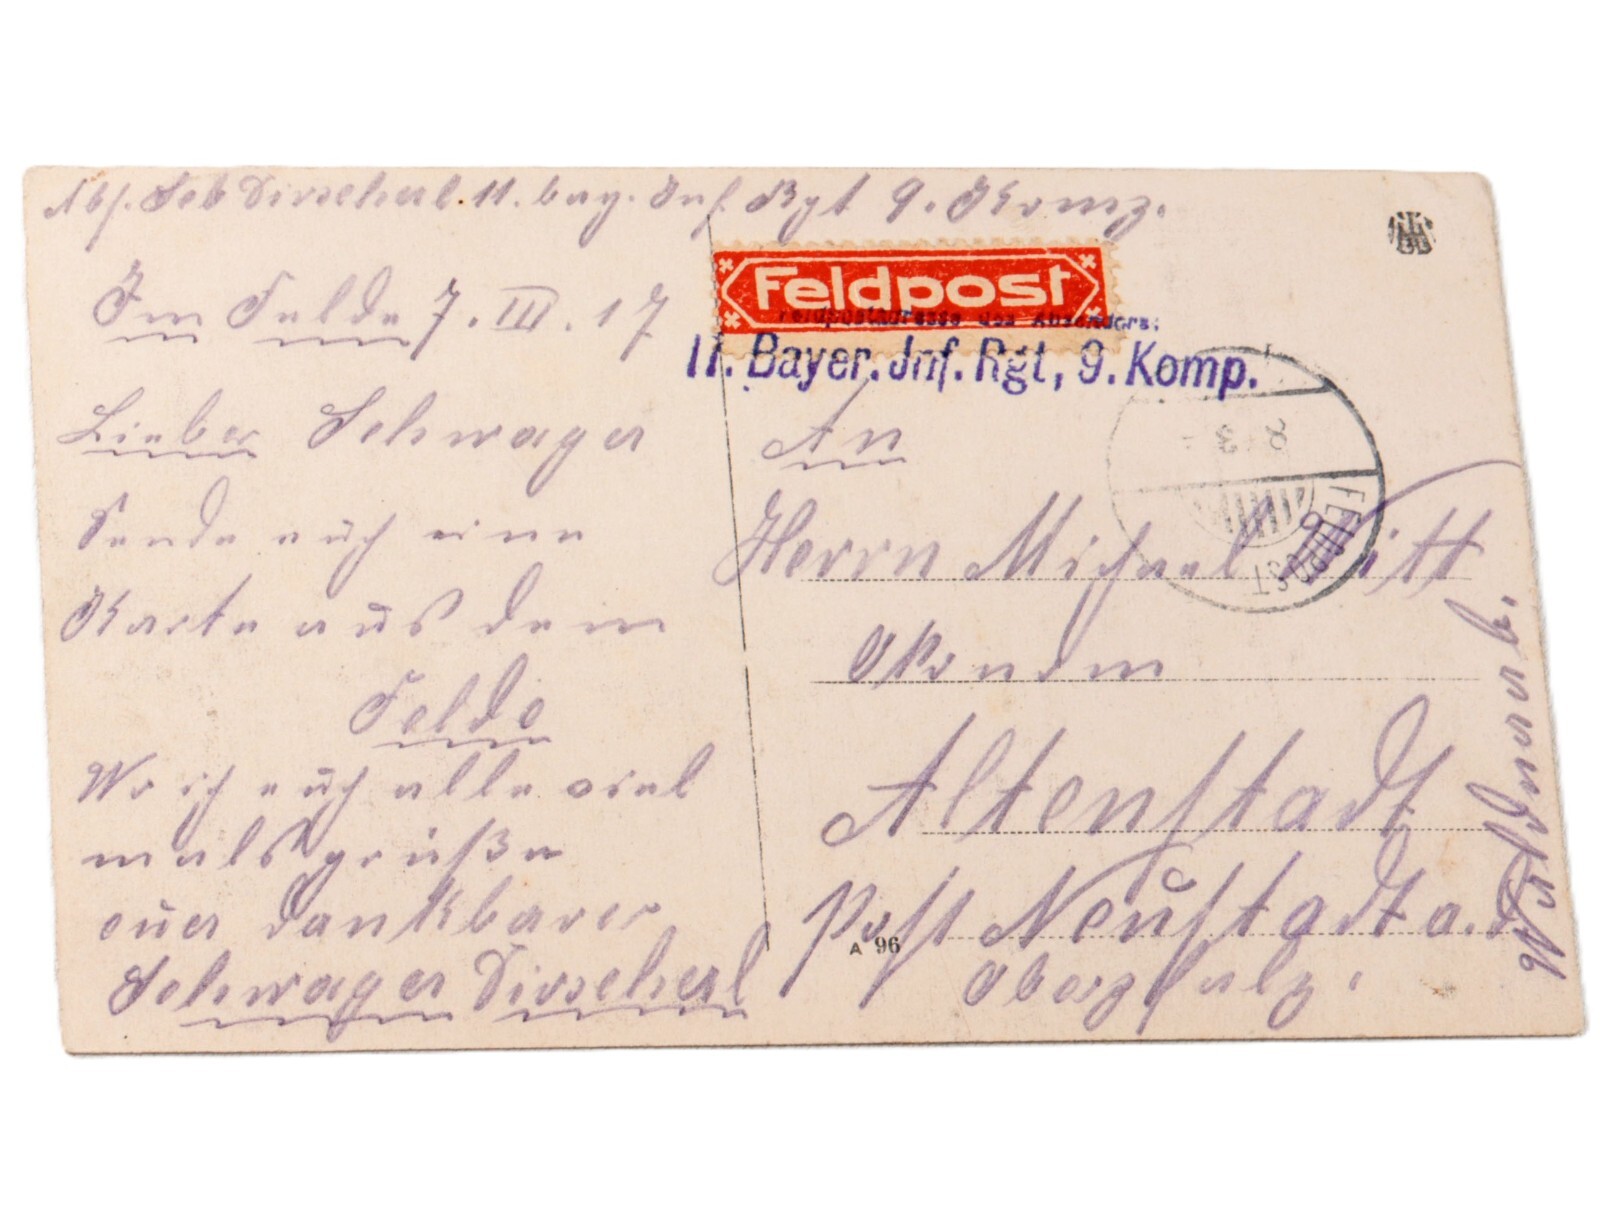 Abs. Seb Dirscherl. 11. bay. Inf. Rgt 9. Komp.
Im Felde 7. III. 17
Lieber Schwager
Sende euch eine
Karte aus dem
Felde
Wo ich euch alle viel
mals grüße
euer dankbarer
Schwager Dirscherl
Feldpost
Feldpostadresse des Absenders:
11. Bayer. Inf. Rgt, 9. Komp.
8 3
FELDPOST
An
Herrn Michael Witt
Ökonom
Altenstadt
Post Neustadt a.
Oberpfalz.
A 96